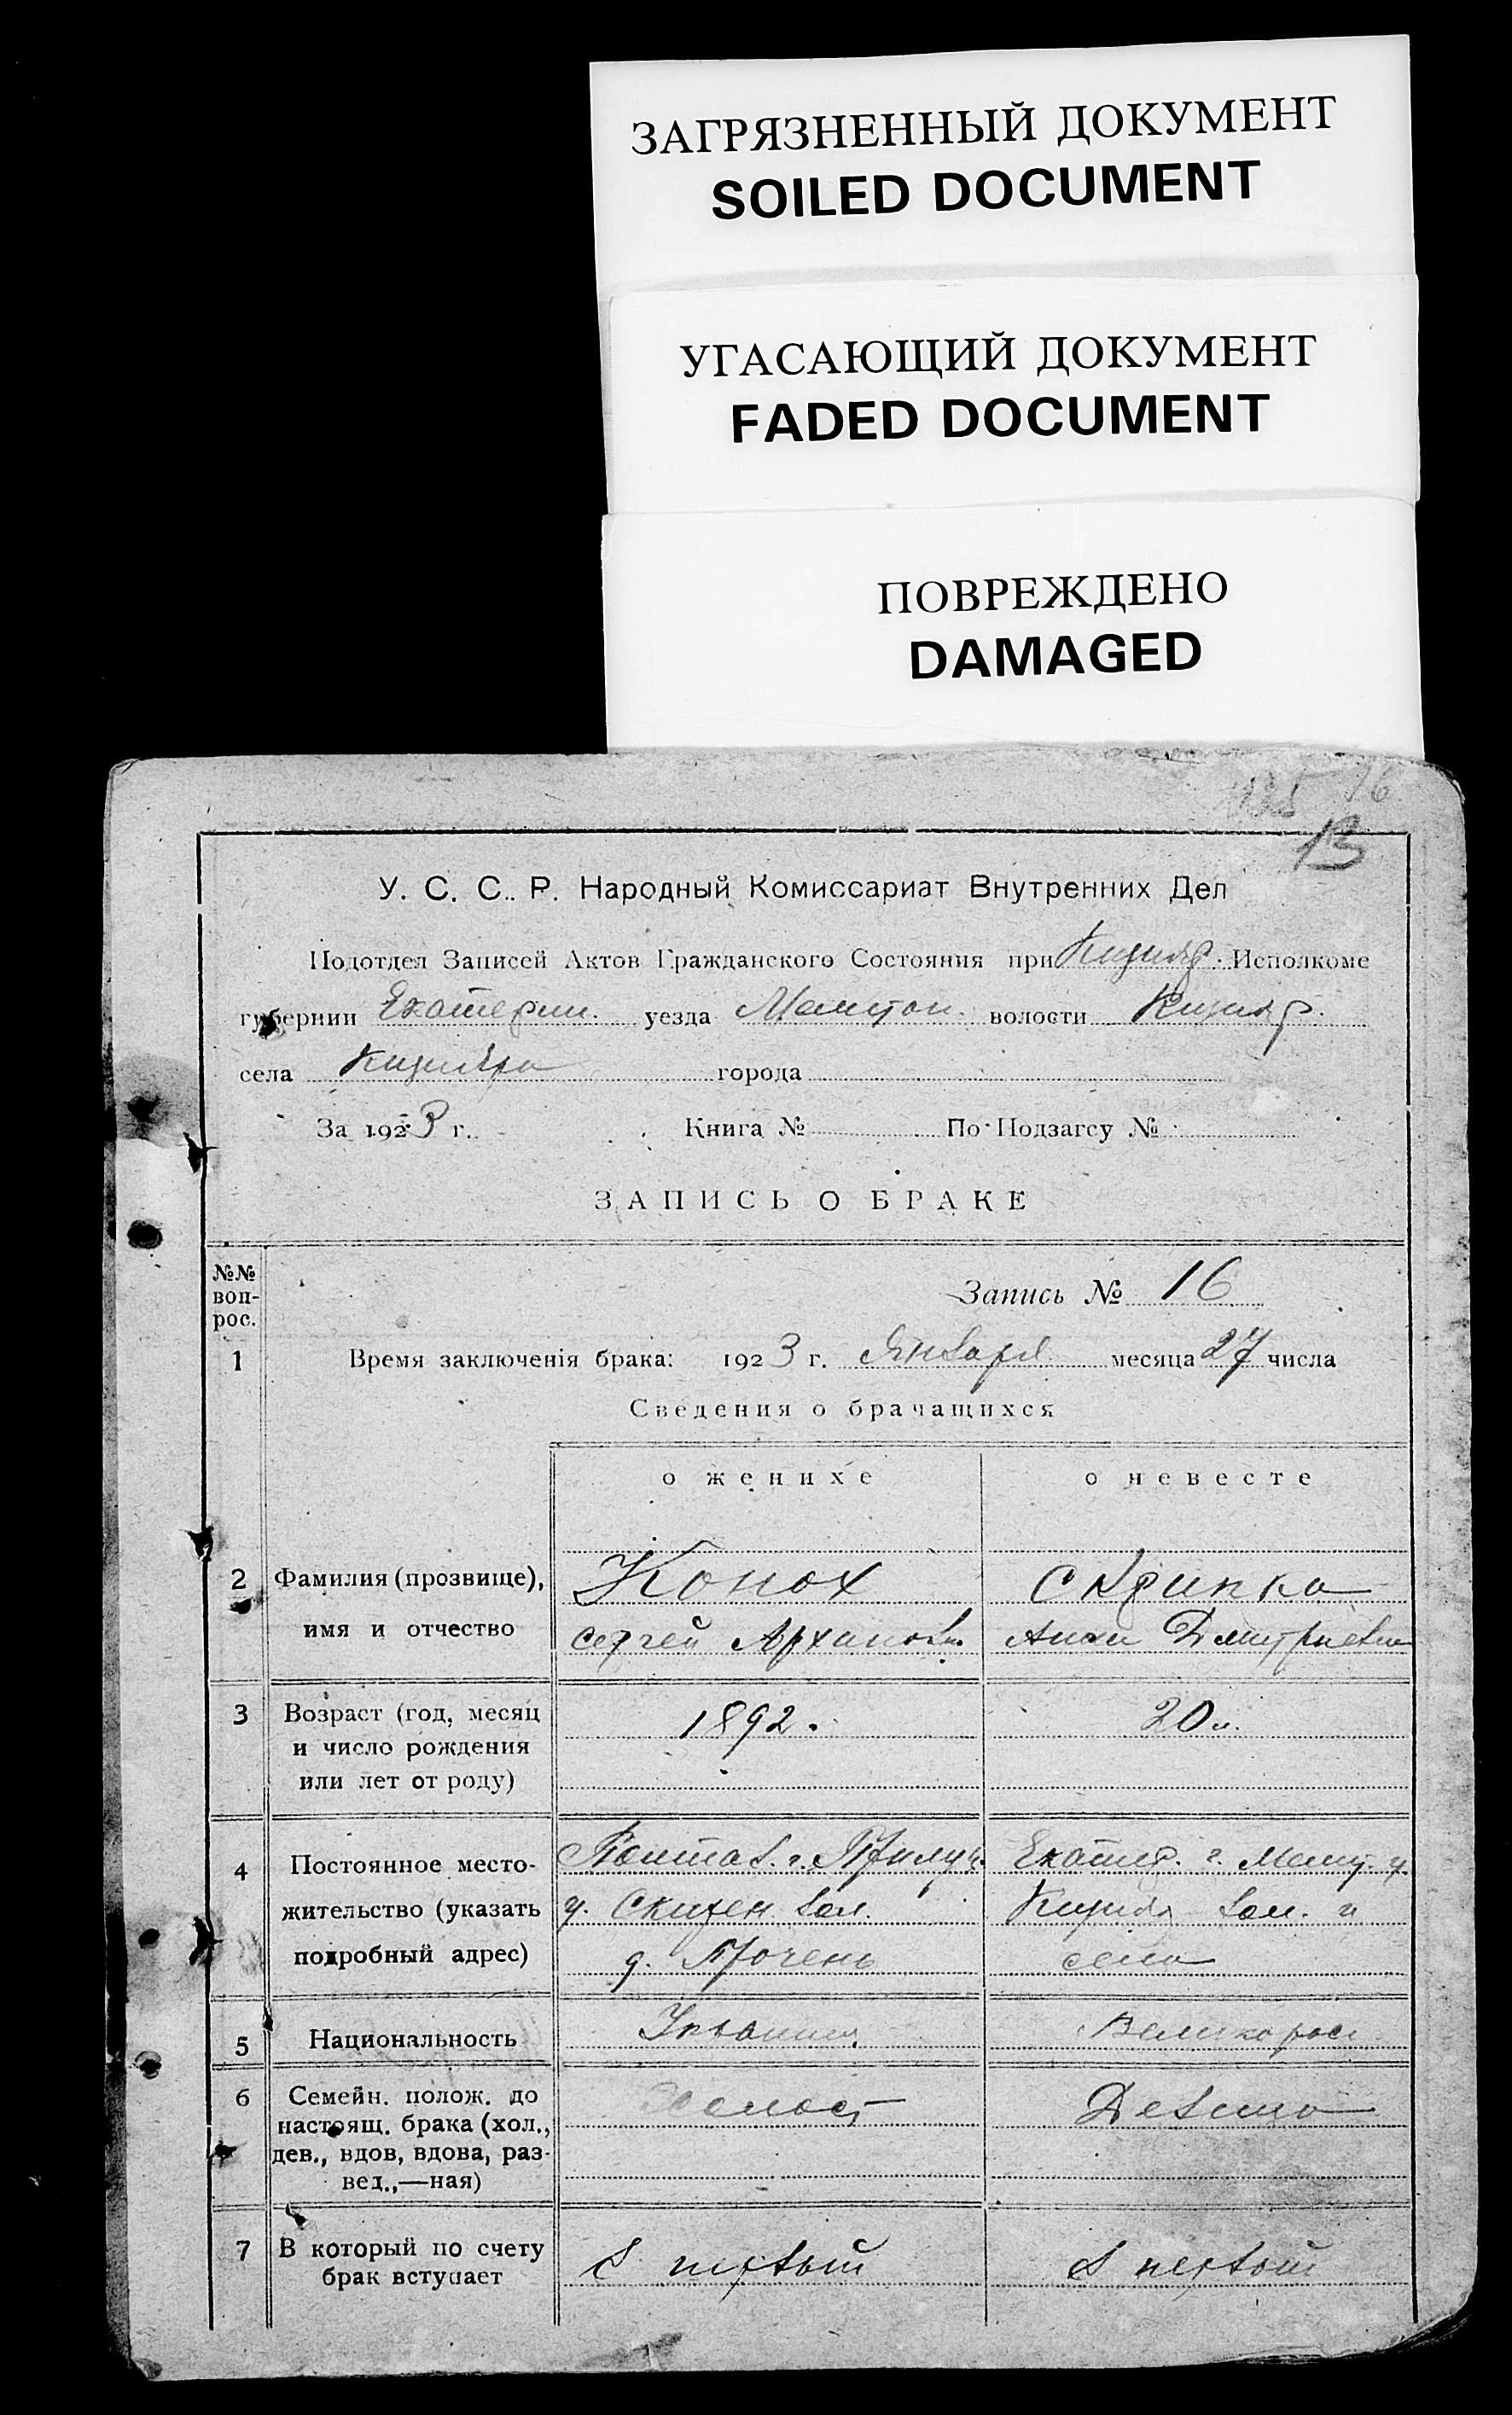 ЗАГРЯЗНЕННЫЙ ДОКУМЕНТ
SOILED DOCUMENT
УГАСАЮЩИЙ ДОКУМЕНТ
FADED DOCUMENT
ПОВРЕЖДЕНО
DAMAGED
16
13
У. С. С. Р. Народный Комиссариат Внутренних Дел
Подотдел Записей Актов Гражданского Состояния при Кизияр. Исполкоме
губернии Екатерин. уезда Мелитоп. волости Кизияр.
села Кизияра города
За 1923 г. Книга № По Подзагсу №
ЗАПИСЬ О БРАКЕ
№№ вопрос.
Запись № 16
1 Время заключенія брака: 1923 г. Января месяца 27 числа
Сведения о брачащихся
о женихе о невесте
2 Фамилия (прозвище), Конох Скрипка
имя и отчество Сергей Архипов. Анна Дмитриевна
3 Возраст (год, месяц 1892. 20 л.
и число рождения
или лет от роду)
4 Постоянное место- Полтав. г. Прилуц. Екатер. г. Мелит. у.
жительство (указать у. вол. Кизияр вол. и
подробный адрес) д. село
5 Национальность Великорос.
6 Семейн. полож. до Холост Девица
настоящ. брака (хол.,
дев., вдов, вдова, раз-
вед.,—ная)
7 В который по счету в первый в первый
брак вступает